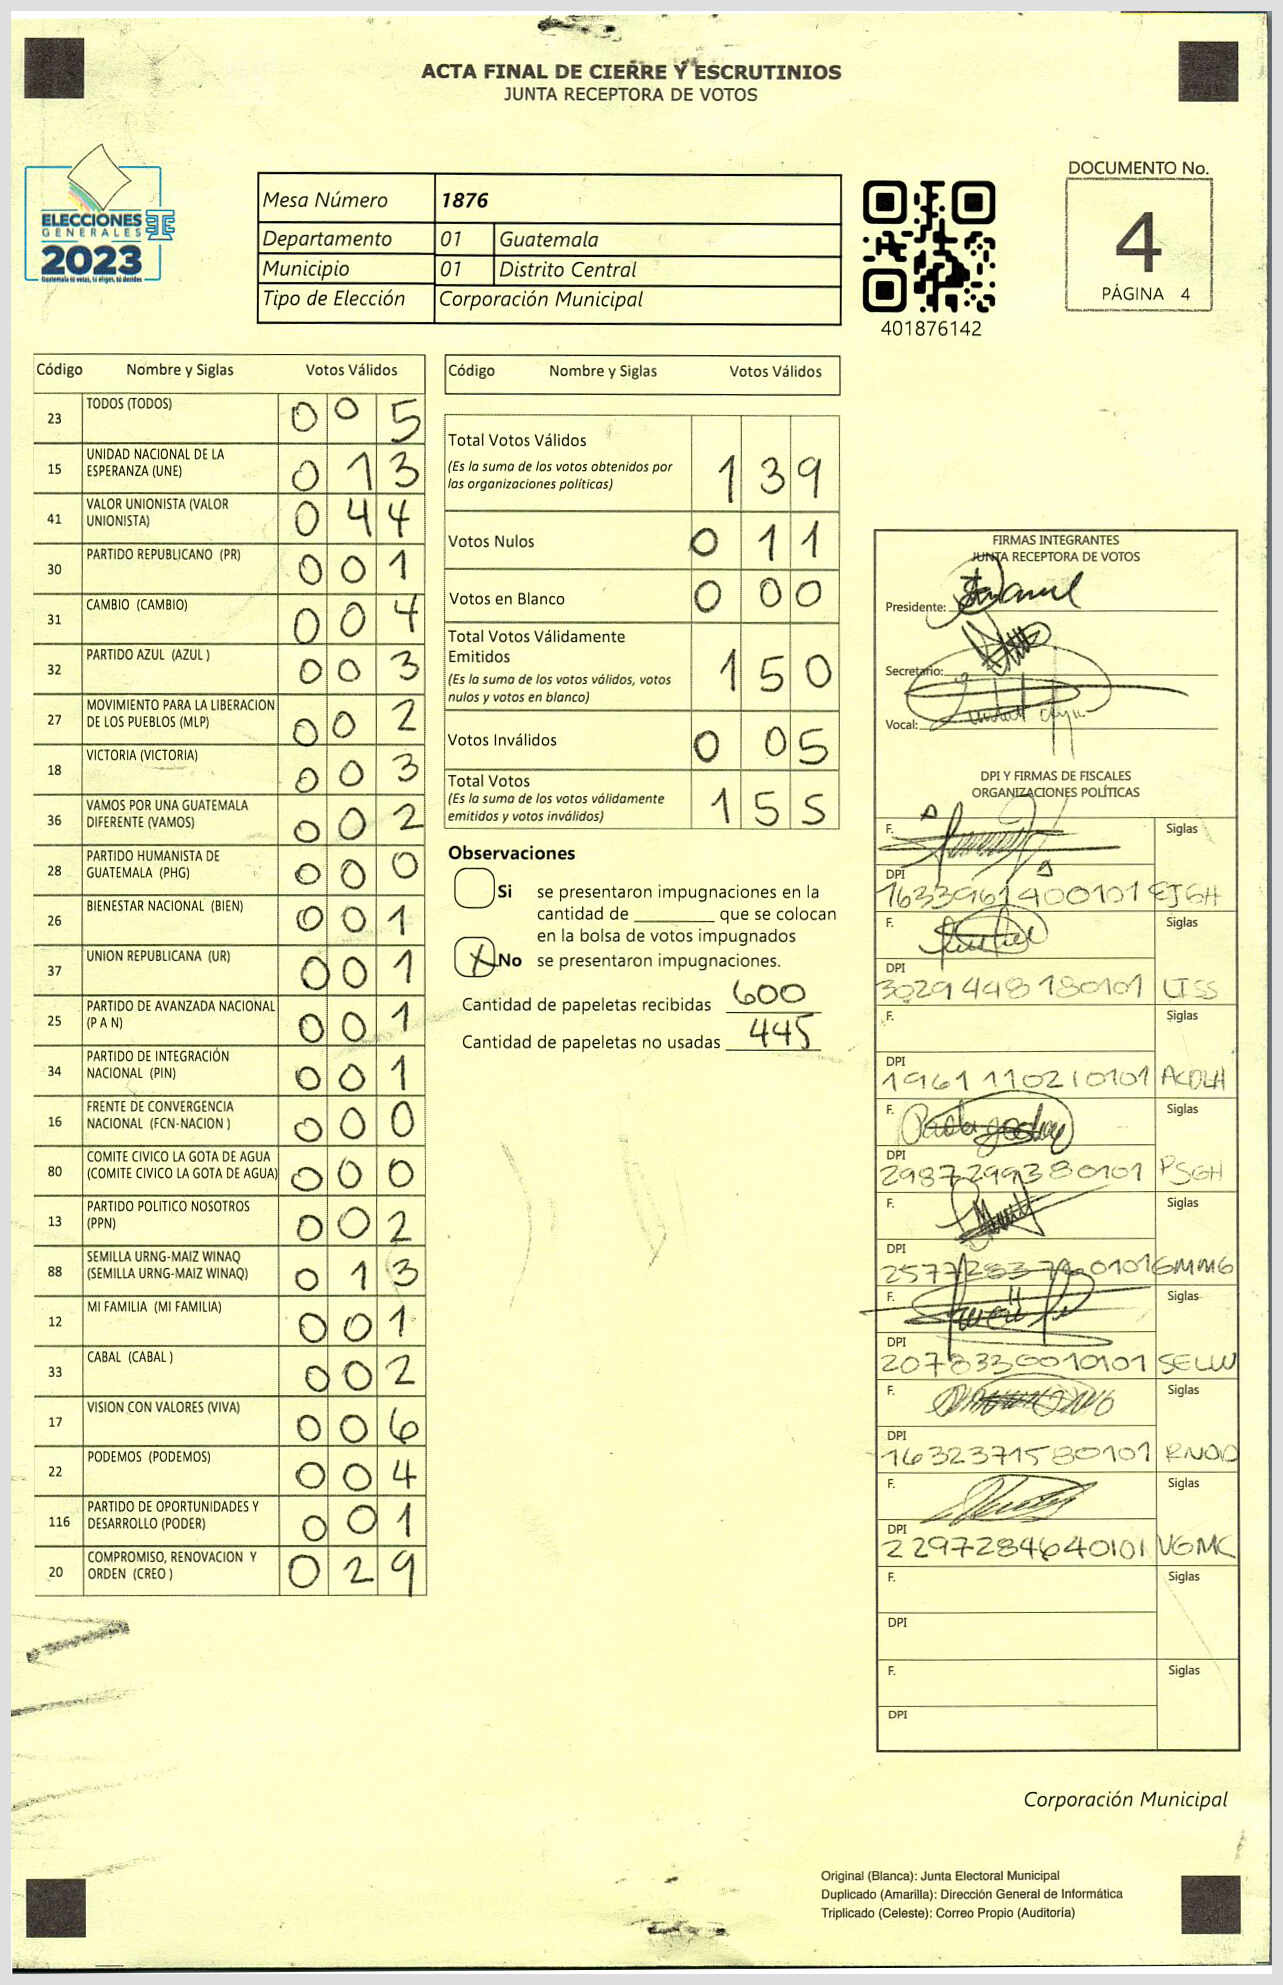 ACTA FINAL DE CIERRE Y ESCRUTINIOS
JUNTA RECEPTORA DE VOTOS
ELECCIONES
GENERALES
2023
Guatemala tú votas, tú eliges, tú decides
Mesa Número 1876
Departamento 01 Guatemala
Municipio 01 Distrito Central
Tipo de Elección Corporación Municipal
401876142
DOCUMENTO No.
4
PÁGINA 4
Código Nombre y Siglas Votos Válidos
23 TODOS (TODOS) 0 0 5
15 UNIDAD NACIONAL DE LA ESPERANZA (UNE) 0 1 3
41 VALOR UNIONISTA (VALOR UNIONISTA) 0 4 4
30 PARTIDO REPUBLICANO (PR) 0 0 1
31 CAMBIO (CAMBIO) 0 0 4
32 PARTIDO AZUL (AZUL ) 0 0 3
27 MOVIMIENTO PARA LA LIBERACION DE LOS PUEBLOS (MLP) 0 0 2
18 VICTORIA (VICTORIA) 0 0 3
36 VAMOS POR UNA GUATEMALA DIFERENTE (VAMOS) 0 0 2
28 PARTIDO HUMANISTA DE GUATEMALA (PHG) 0 0 0
26 BIENESTAR NACIONAL (BIEN) 0 0 1
37 UNION REPUBLICANA (UR) 0 0 1
25 PARTIDO DE AVANZADA NACIONAL (P A N) 0 0 1
34 PARTIDO DE INTEGRACIÓN NACIONAL (PIN) 0 0 1
16 FRENTE DE CONVERGENCIA NACIONAL (FCN-NACION ) 0 0 0
80 COMITE CIVICO LA GOTA DE AGUA (COMITE CIVICO LA GOTA DE AGUA) 0 0 0
13 PARTIDO POLITICO NOSOTROS (PPN) 0 0 2
88 SEMILLA URNG-MAIZ WINAQ (SEMILLA URNG-MAIZ WINAQ) 0 1 3
12 MI FAMILIA (MI FAMILIA) 0 0 1
33 CABAL (CABAL ) 0 0 2
17 VISION CON VALORES (VIVA) 0 0 6
22 PODEMOS (PODEMOS) 0 0 4
116 PARTIDO DE OPORTUNIDADES Y DESARROLLO (PODER) 0 0 1
20 COMPROMISO, RENOVACION Y ORDEN (CREO ) 0 2 9
Código Nombre y Siglas Votos Válidos
Total Votos Válidos 1 3 9
(Es la suma de los votos obtenidos por
las organizaciones políticas)
Votos Nulos 0 1 1
Votos en Blanco 0 0 0
Total Votos Válidamente
Emitidos 1 5 0
(Es la suma de los votos válidos, votos
nulos y votos en blanco)
Votos Inválidos 0 0 5
Total Votos 1 5 5
(Es la suma de los votos válidamente
emitidos y votos inválidos)
Observaciones
Si se presentaron impugnaciones en la
cantidad de ________ que se colocan
en la bolsa de votos impugnados
X No se presentaron impugnaciones.
Cantidad de papeletas recibidas 600
Cantidad de papeletas no usadas 445
FIRMAS INTEGRANTES
JUNTA RECEPTORA DE VOTOS
Presidente:
Secretario:
Vocal:
DPI Y FIRMAS DE FISCALES
ORGANIZACIONES POLÍTICAS
F. Siglas
DPI
1633961400101 EJGH
F. Siglas
DPI
3029448180101 LISS
F. Siglas
DPI
1961110210101 ACDLH
F. Siglas
DPI
2987299380101 PSGH
F. Siglas
DPI
0101 GMMG
F. Siglas
DPI
2078330010101 SELW
F. Siglas
DPI
1632371580101 RNOD
F. Siglas
DPI
2297284640101 VGMC
F. Siglas
DPI
F. Siglas
DPI
Corporación Municipal
Original (Blanca): Junta Electoral Municipal
Duplicado (Amarilla): Dirección General de Informática
Triplicado (Celeste): Correo Propio (Auditoría)